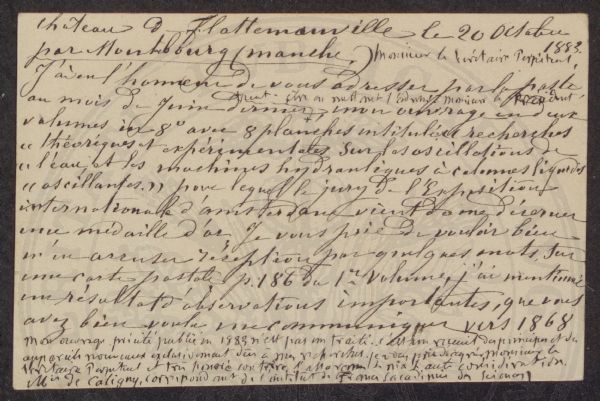 château de Flottemanville le 20 Octobre
par Montebourg (manche) 1883.
Monsieur le Secrétaire Perpétuel,
J'ai eu l'honneur de vous adresser par la poste
au mois de Juin dernier, mon ouvrage en deux
volumes in 8° avec 8 planches intitulé recherches
« théoriques et expérimentales sur les oscillations de
« l'eau et les machines hydrauliques à colonnes liquides
« oscillantes, » pour lequel le jury de l'Exposition
internationale d'amsterdam vient de me décerner
une médaille d'or. Je vous prie de vouloir bien
m'en accuser réception par quelques mots sur
une carte postale. p. 186 du 1er volume, j'ai mentionné
un résultat d'observations importantes, que vous
avez bien voulu me communiquer vers 1868
mon ouvrage précité publié en 1883 n'est pas un traité. c'est un recueil de principes et des
appareils nouveaux exclusivement dus à mes recherches. je vous prie d'agréer, Monsieur le
Secrétaire Perpétuel et très honoré confrère, l'assurance de ma haute considération
Mis de Caligny, correspondant de l'institut de France (académie des sciences)